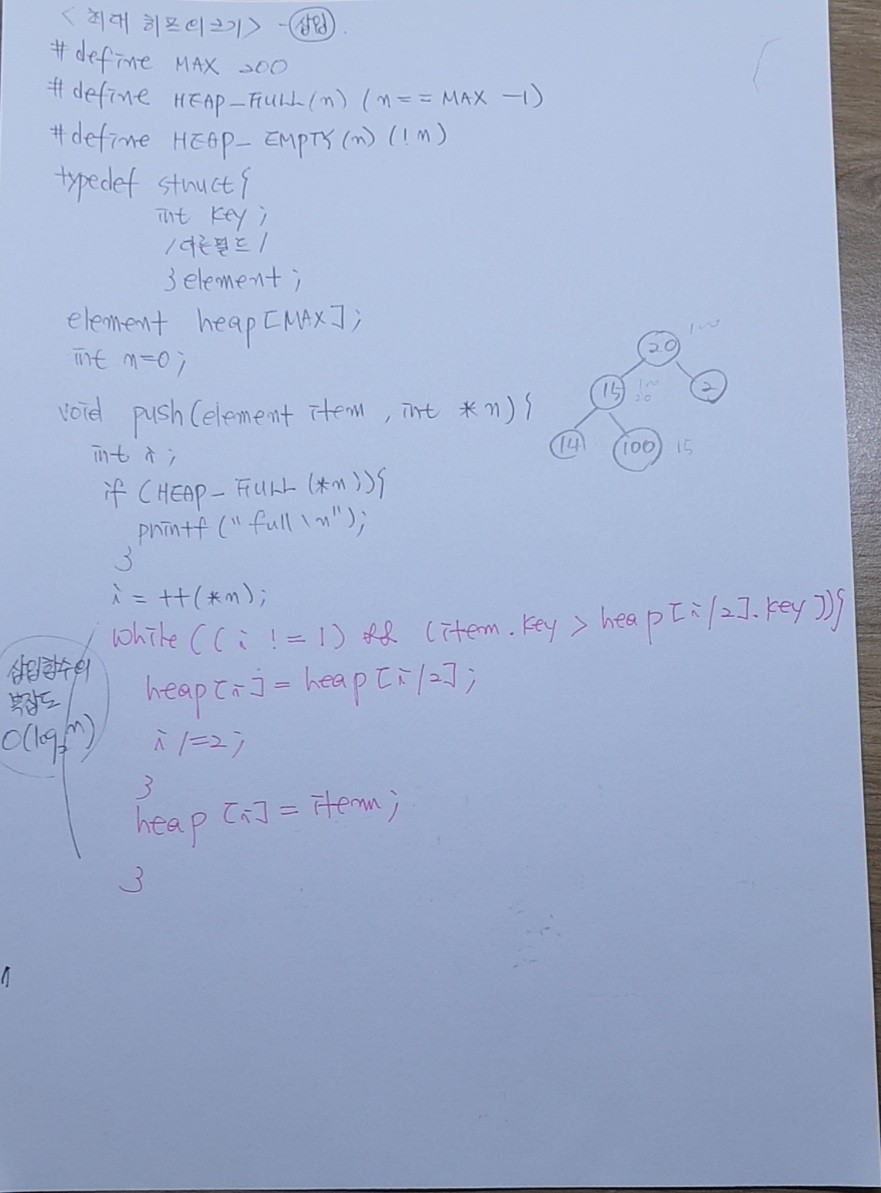 < 최대 히프의 크기> - 삽입
#define MAX 200
#define HEAP_FULL(n) (n == MAX -1)
#define HEAP_EMPTY(n) (!n)
typedef struct{
int key;
/다른필드/
}element;
element heap[MAX];
int n=0;
void push(element item, int *n){
int i;
if (HEAP_FULL(*n)){
printf("full\n");
}
i = ++(*n);
while((i != 1) && (item.key > heap[i/2].key)){
heap[i] = heap[i/2];
i /=2;
}
heap[i] = item;
}
삽입함수의
복잡도
O(log₂n)
20 100
15 100 20 2
14 100 15